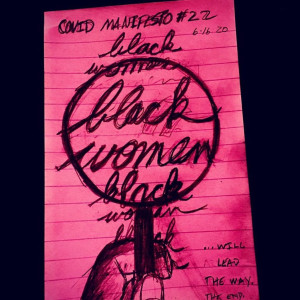 COVID MANIFISTO #22
6·16·20
black
women
black
women
black
woman
black
... WILL
LEAD
THE WAY.
THE END